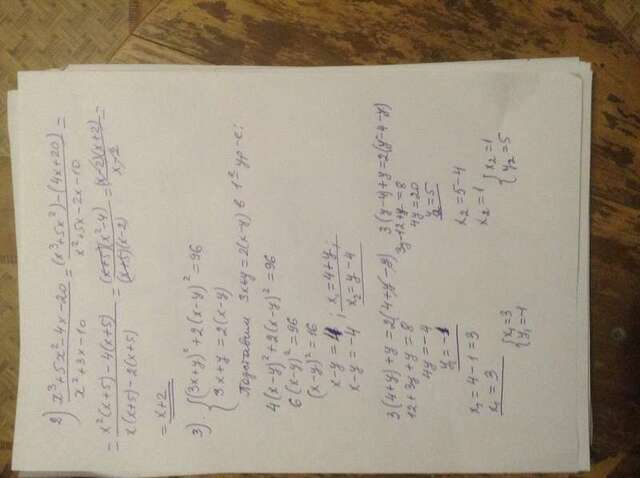 2) (x³+5x²-4x-20)/(x²+3x-10) = ((x³+5x²)-(4x+20))/(x²+5x-2x-10) =
= (x²(x+5)-4(x+5))/(x(x+5)-2(x+5)) = ((x+5)(x²-4))/((x+5)(x-2)) = ((x-2)(x+2))/(x-2) =
= x+2
3). { (3x+y)²+2(x-y)²=96
3x+y=2(x-y)
Подставим 3x+y=2(x-y) в 1ᵒᵉ ур-е:
4(x-y)²+2(x-y)²=96
6(x-y)²=96
(x-y)²=16
x-y=4 ; x₁=4+y;
x-y=-4 x₂=y-4
3(4+y)+y=2(4+y-y) 3(y-4)+y=2(y-4-y)
12+3y+y=8 3y-12+y=8
4y=-4 4y=20
y₁=-1 y₂=5
x₁=4-1=3 x₂=5-4
x₁=3 x₂=1
{ x₁=3 { x₂=1
y₁=-1 y₂=5